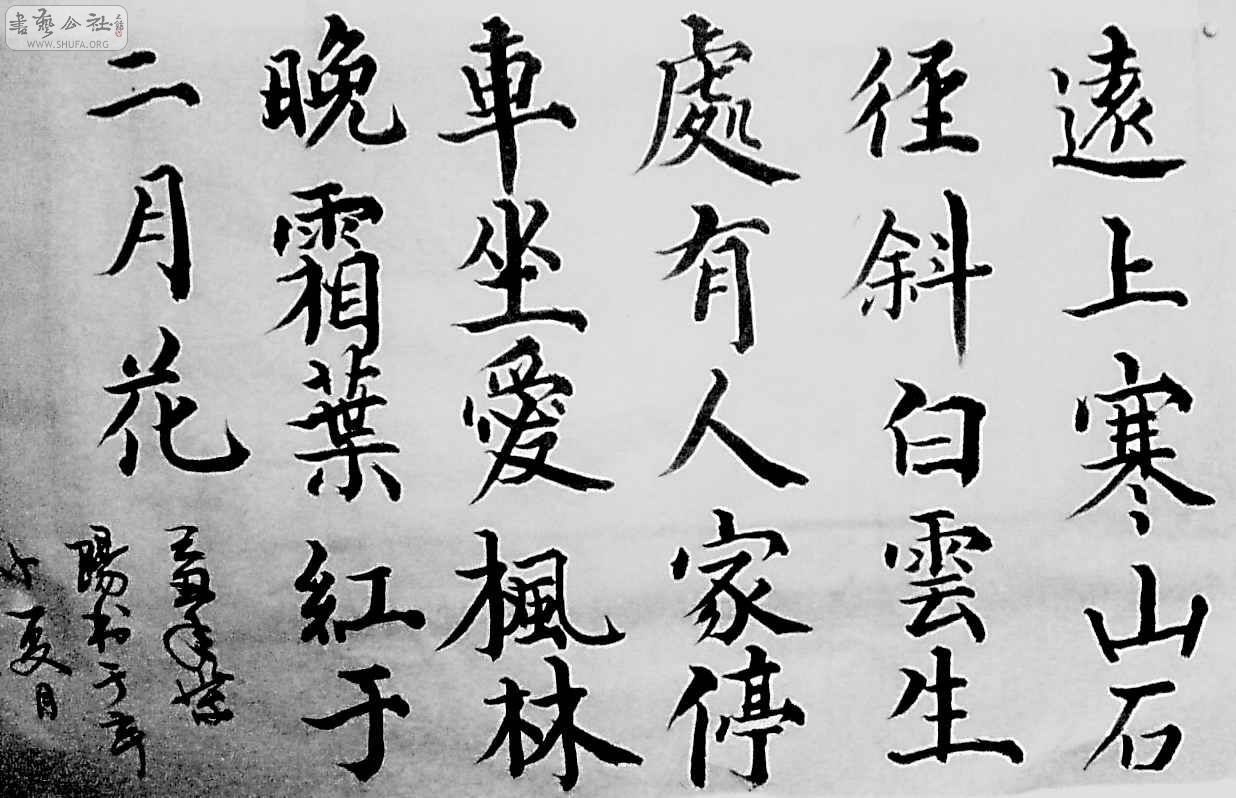 遠上寒山石
徑斜白雲生
處有人家停
車坐愛楓林
晚霜葉紅于
二月花
夏月
書藝公社
WWW.SHUFA.ORG